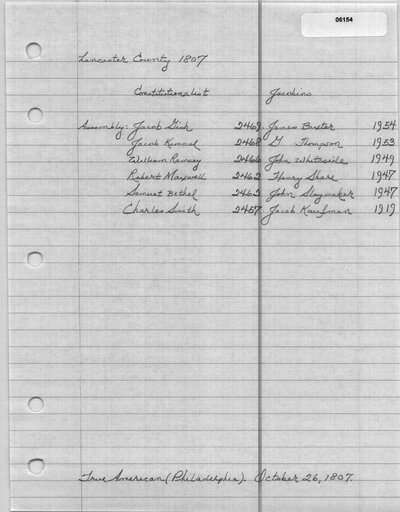 06154
Lancaster County 1807
Constitutionalist Jacobins
Assembly: Jacob Gish 2469 James Baxter 1954
Jacob Kimmel 2468 G Thompson 1953
William Ramsey 2466 John Whiteside 1949
Robert Maxwell 2462 Henry Share 1947
Samuel Bethel 2462 John Slaymaker 1947
Charles Smith 2457 Jacob Kaufman 1919
True American (Philadelphia). October 26, 1807.